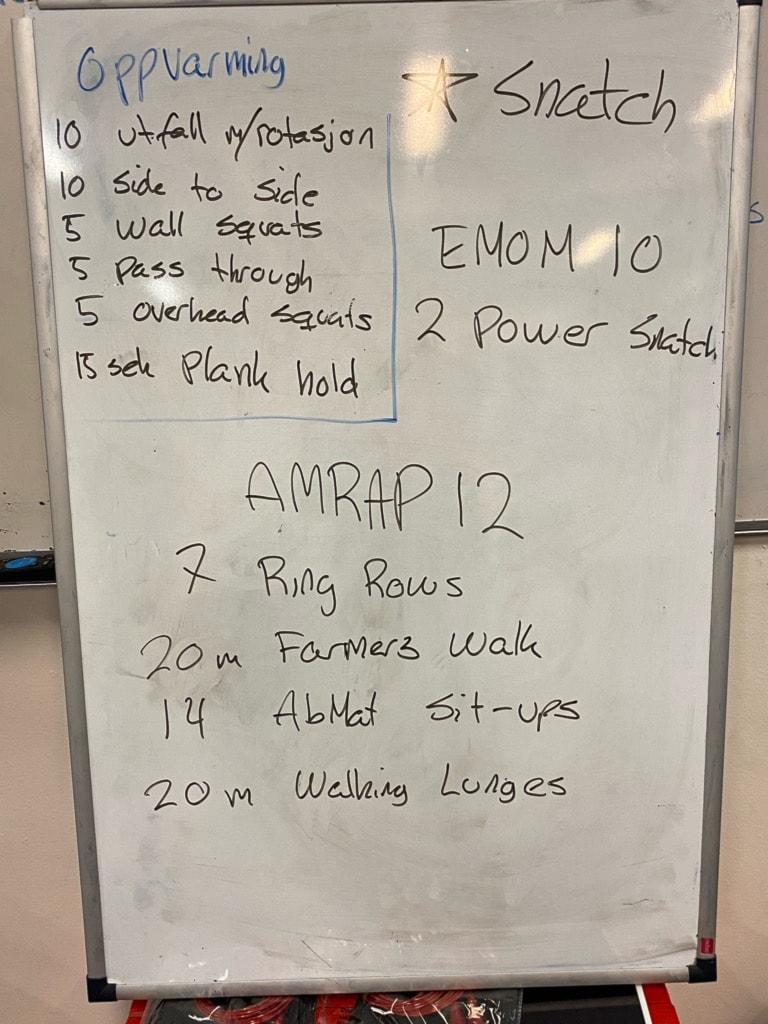 Oppvarming
10 utfall m/rotasjon
10 side to side
5 wall squats
5 pass through
5 overhead squats
15 sek Plank hold
☆ Snatch
EMOM 10
2 Power Snatch
AMRAP 12
7 Ring Rows
20 m Farmers Walk
14 AbMat Sit-ups
20 m Walking Lunges